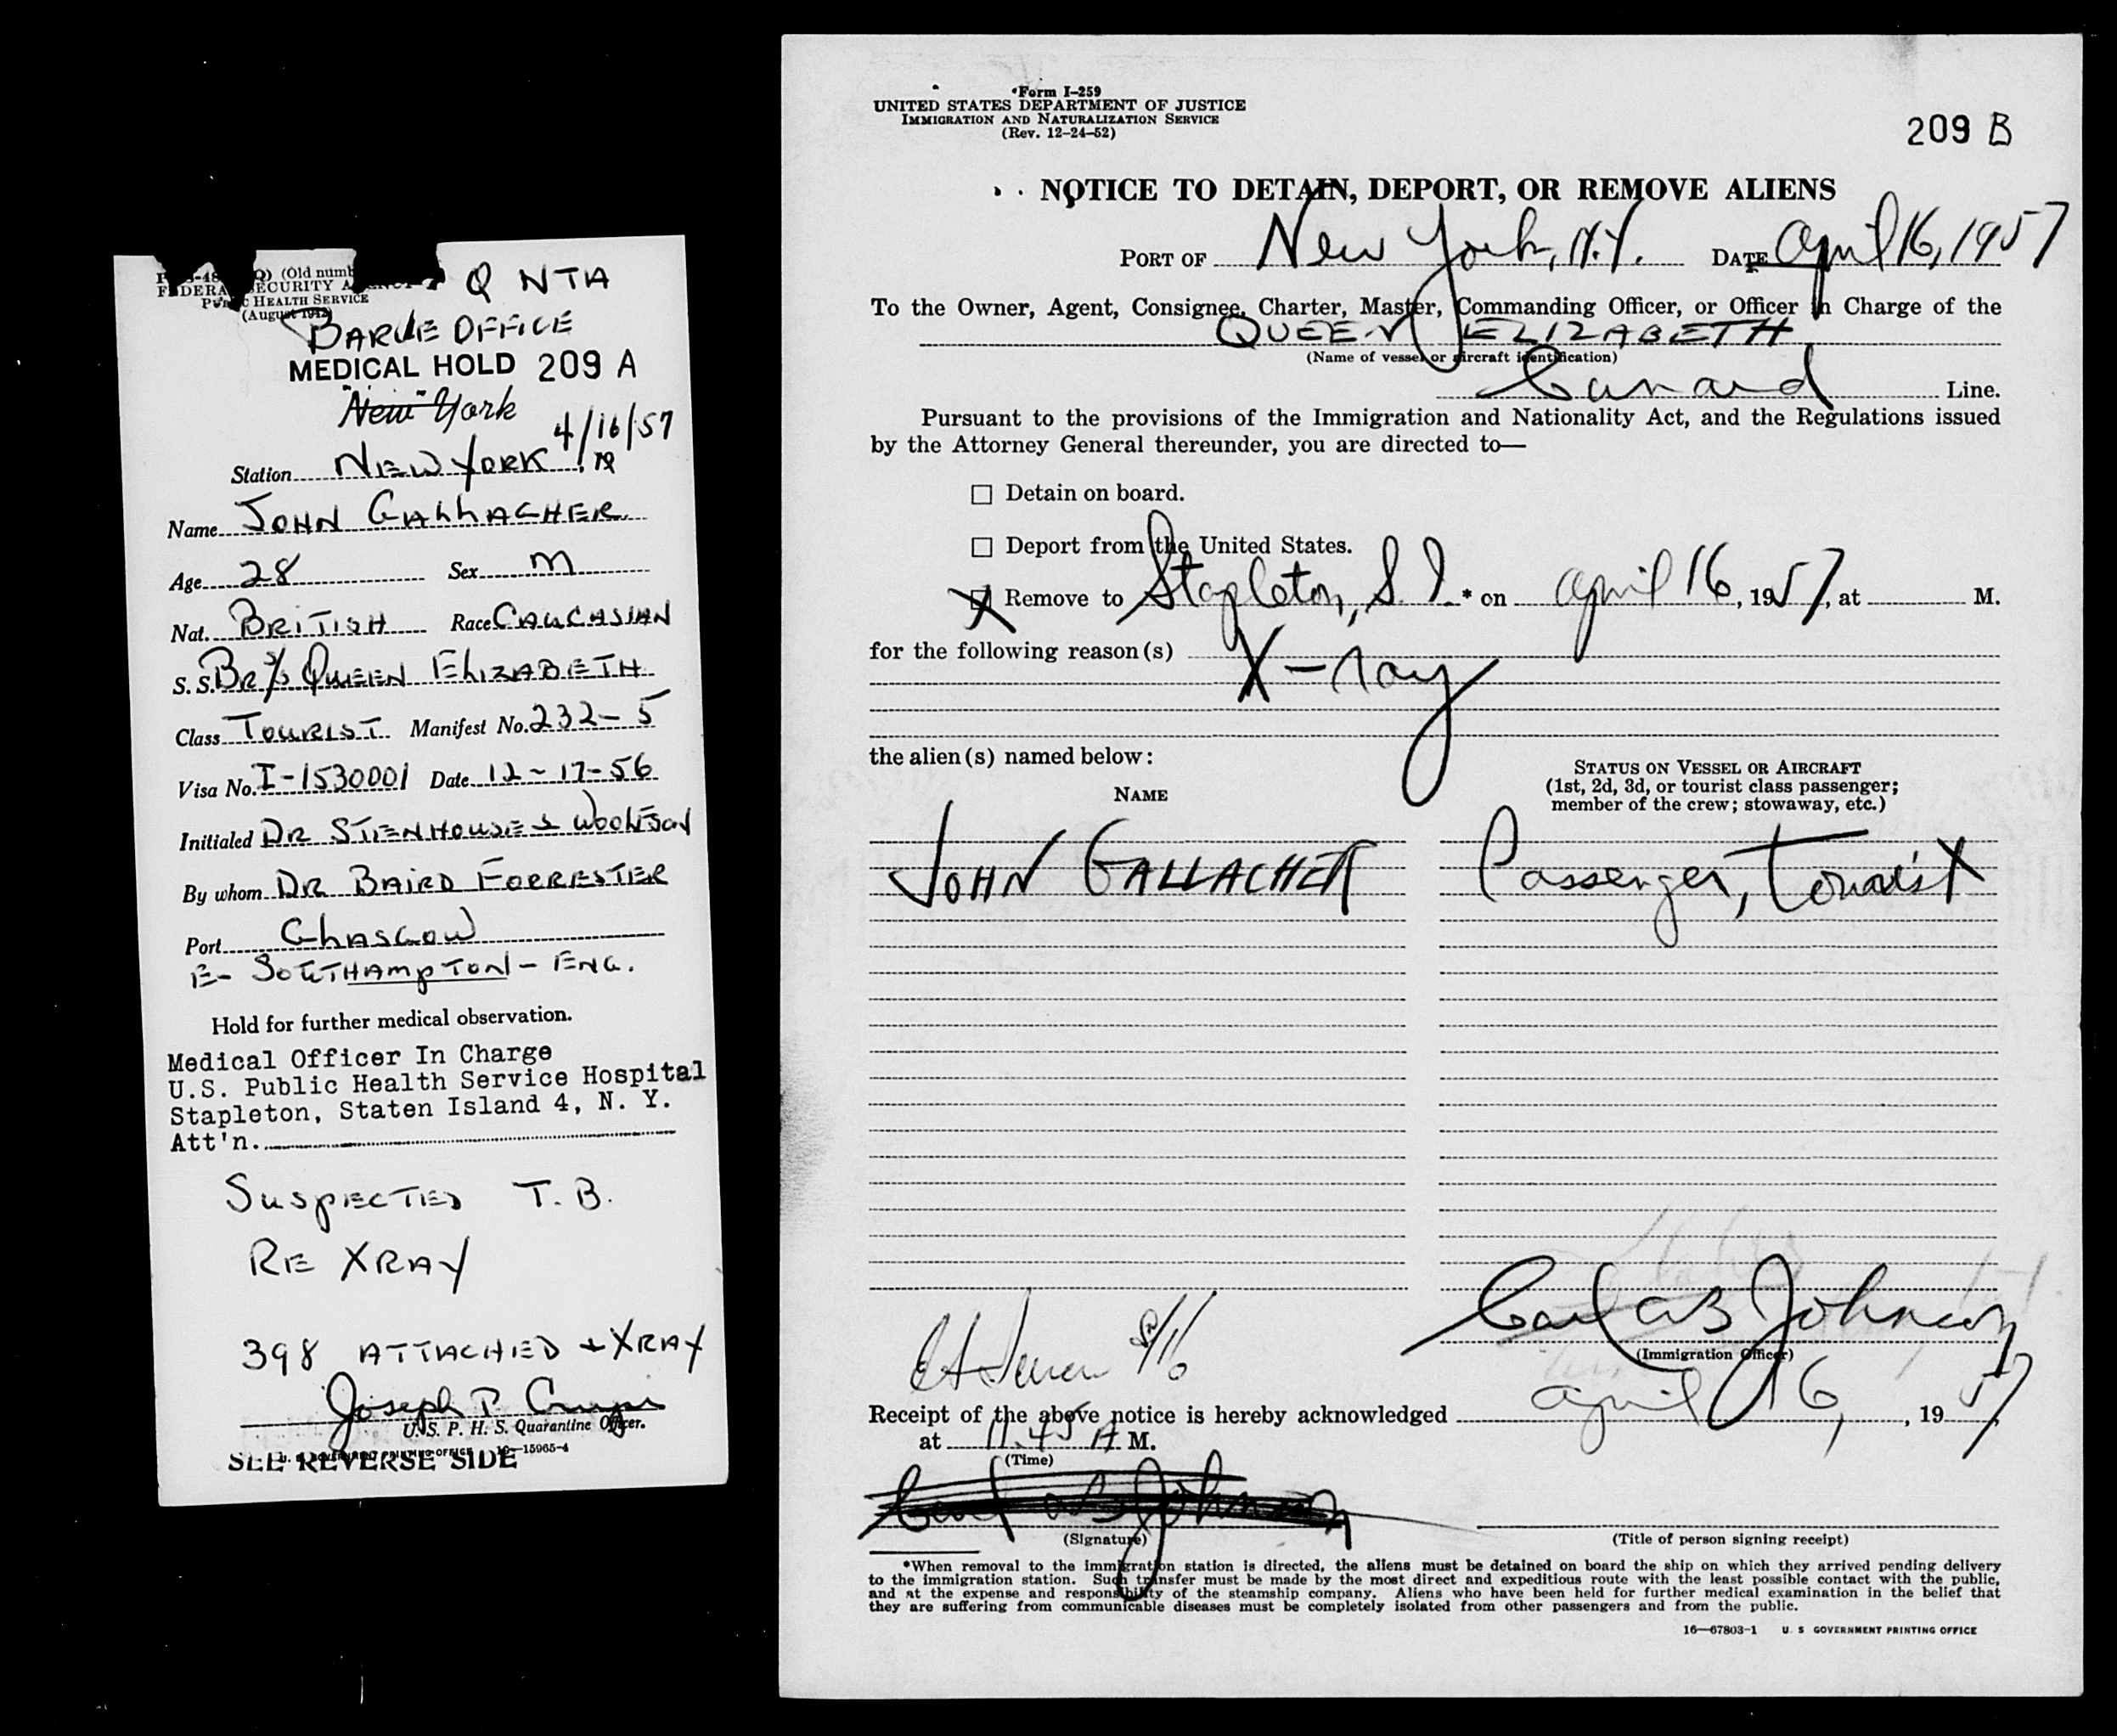 Q NTA
(Old numb
FEDERA SECURITY A
PUBLIC HEALTH SERVICE
(August 1942)
BARGE OFFICE
MEDICAL HOLD 209 A
"New" York
4/16/57
Station NEW YORK, 19
Name JOHN GALLAGHER
Age 28 Sex M
Nat. BRITISH Race CAUCASIAN
S. S. BR S/S QUEEN ELIZABETH
Class TOURIST Manifest No. 232-5
Visa No. I-1530001 Date 12-17-56
Initialed DR STENHOUSE & WOOLFSON
By whom DR BAIRD FORRESTER
Port GLASGOW
E- SOUTHAMPTON - ENG.
Hold for further medical observation.
Medical Officer In Charge
U.S. Public Health Service Hospital
Stapleton, Staten Island 4, N. Y.
Att'n.
SUSPECTED T.B.
RE XRAY
398 ATTACHED + XRAY
Joseph P.
U. S. P. H. S. Quarantine Officer.
U. S. GOVERNMENT PRINTING OFFICE 16—15965-4
SEE REVERSE SIDE
Form I-259
UNITED STATES DEPARTMENT OF JUSTICE
IMMIGRATION AND NATURALIZATION SERVICE
(Rev. 12-24-52)
209 B
NOTICE TO DETAIN, DEPORT, OR REMOVE ALIENS
PORT OF New York, N.Y. DATE April 16, 1957
To the Owner, Agent, Consignee, Charter, Master, Commanding Officer, or Officer in Charge of the
QUEEN ELIZABETH
(Name of vessel or aircraft identification)
Cunard Line.
Pursuant to the provisions of the Immigration and Nationality Act, and the Regulations issued
by the Attorney General thereunder, you are directed to—
☐ Detain on board.
☐ Deport from the United States.
X Remove to Stapleton, S. I.* on April 16, 1957, at M.
for the following reason(s)
X-ray
the alien(s) named below:
NAME
STATUS ON VESSEL OR AIRCRAFT
(1st, 2d, 3d, or tourist class passenger;
member of the crew; stowaway, etc.)
JOHN GALLACHER Passenger, Tourist
Carl A B Johnson
(Immigration Officer)
Receipt of the above notice is hereby acknowledged April 16, 1957
at 11.45 A M.
(Time)
Carl A B Johnson
(Signature)
(Title of person signing receipt)
*When removal to the immigration station is directed, the aliens must be detained on board the ship on which they arrived pending delivery
to the immigration station. Such transfer must be made by the most direct and expeditious route with the least possible contact with the public,
and at the expense and responsibility of the steamship company. Aliens who have been held for further medical examination in the belief that
they are suffering from communicable diseases must be completely isolated from other passengers and from the public.
16—67803-1 U. S GOVERNMENT PRINTING OFFICE